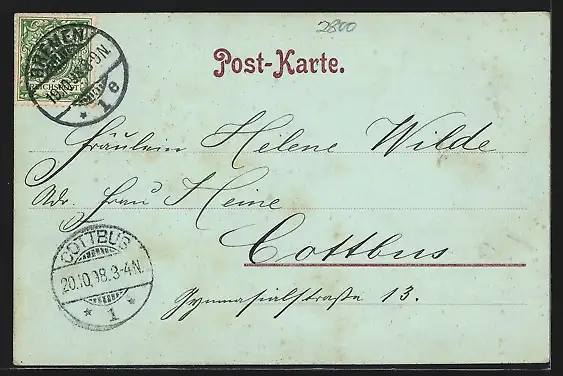 2800
Post-Karte.
BREMEN
REICHSPOST
1 e
Fräulein Helene Wilde
Adr. Frau Heine
Cottbus
Gymnasialstraße 13.
COTTBUS
20.10.98.3-4N.
* 1 *